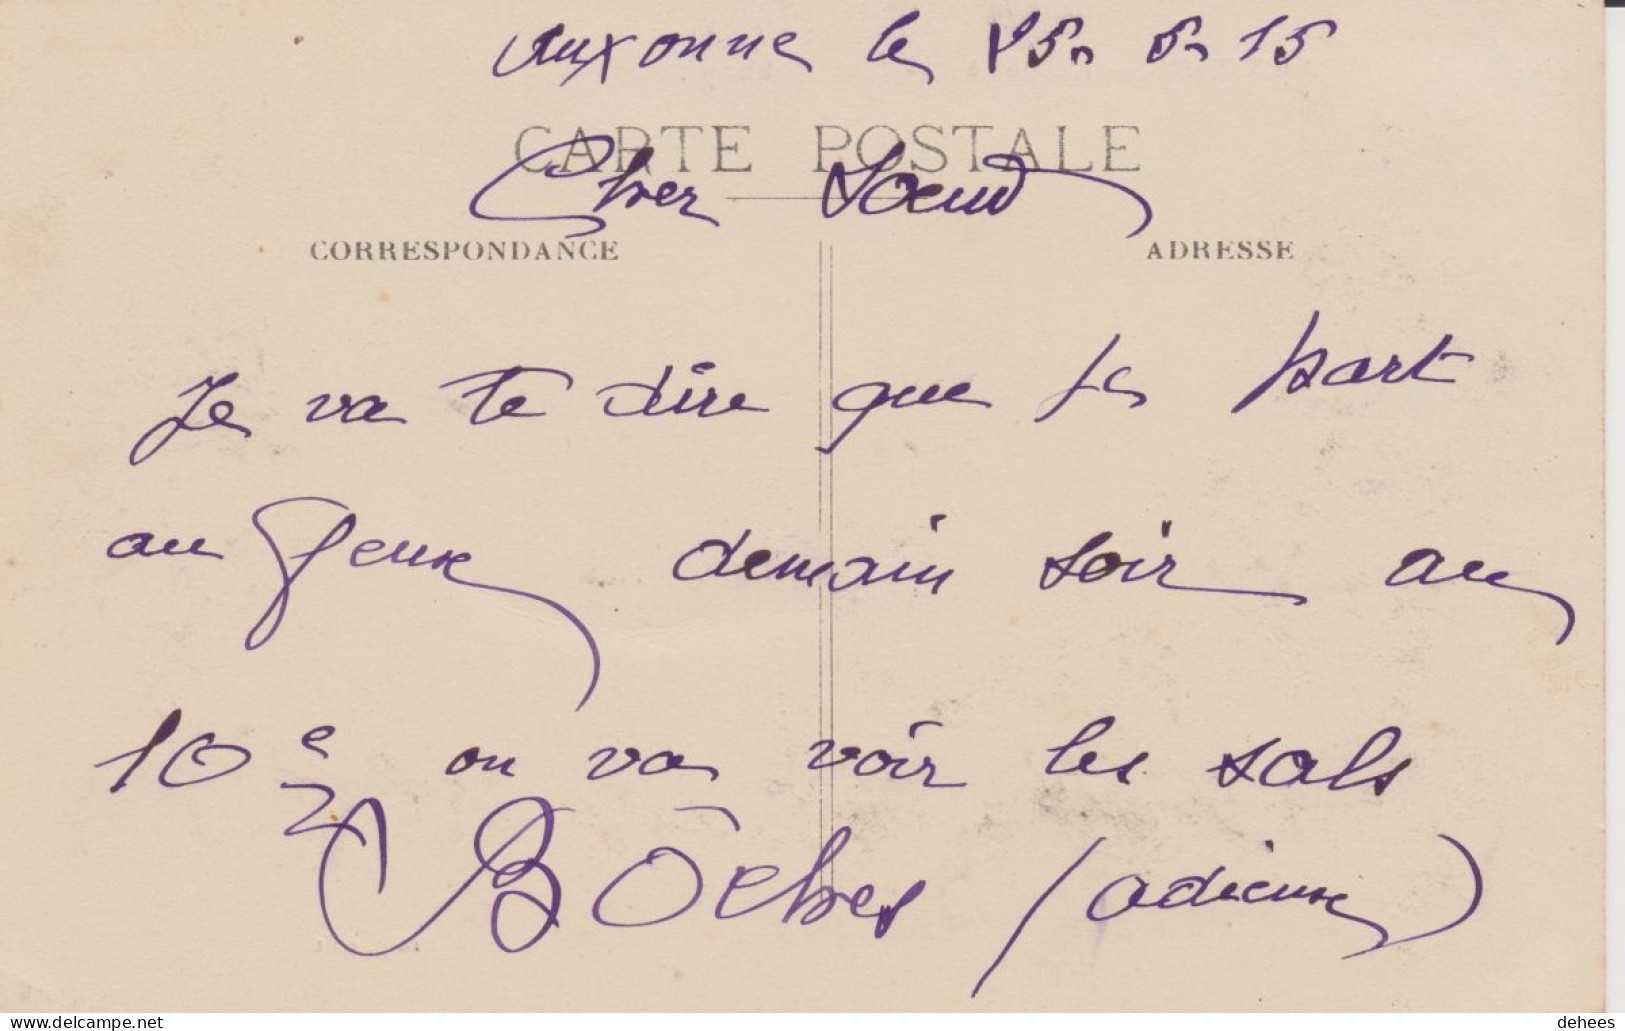 Auxonne le 15n 5n 15
CARTE POSTALE
Cher Soeur
CORRESPONDANCE
ADRESSE
Je va te dire que je part
au feux demain soir au
10e on va voir les sals
Bôches (adieux)
delcampe.net
dehees